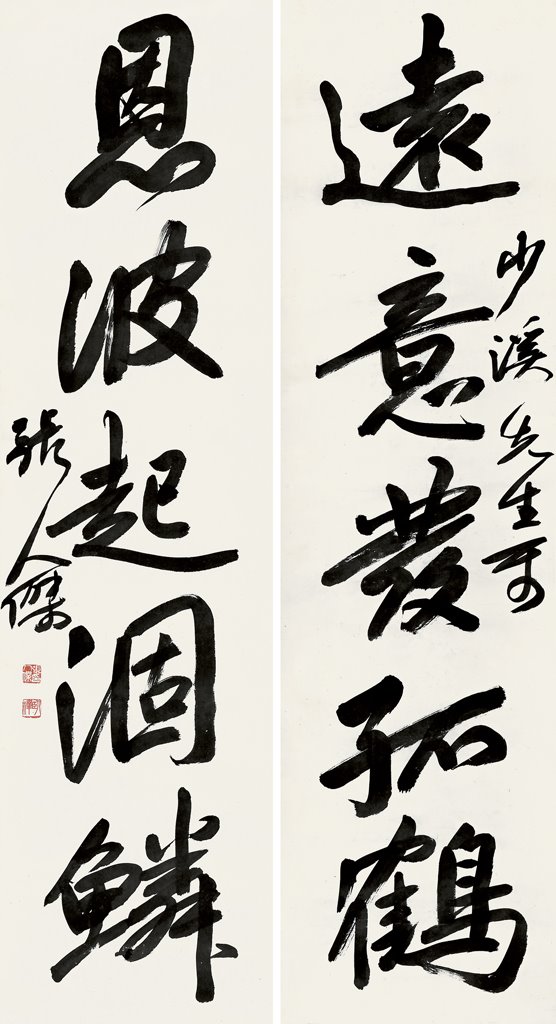 遠意發孤鶴
少溪先生
恩波起涸鱗
張人傑